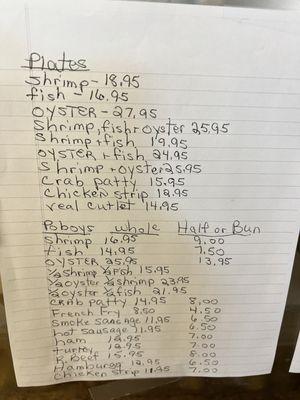 Plates
Shrimp - 18.95
fish - 16.95
OYSTER - 27.95
Shrimp, fish + oyster 25.95
Shrimp + fish 19.95
OYSTER + fish 24.95
Shrimp + oyster 25.95
Crab patty 15.95
Chicken Strip 12.95
veal cutlet 14.95
Poboys whole Half or Bun
Shrimp 16.95 9.00
fish 14.95 7.50
OYSTER 25.95 13.95
1/2 Shrimp 1/2 fish 15.95
1/2 oyster 1/2 shrimp 23.95
1/2 oyster 1/2 fish 21.95
Crab patty 14.95 8.00
French Fry 8.50 4.50
Smoke Sausage 11.95 6.50
hot Sausage 11.95 6.50
ham 12.95 7.00
turkey 12.95 7.00
R. Beef 15.95 8.00
Hamburger 12.95 6.50
Chicken Strip 11.95 7.00